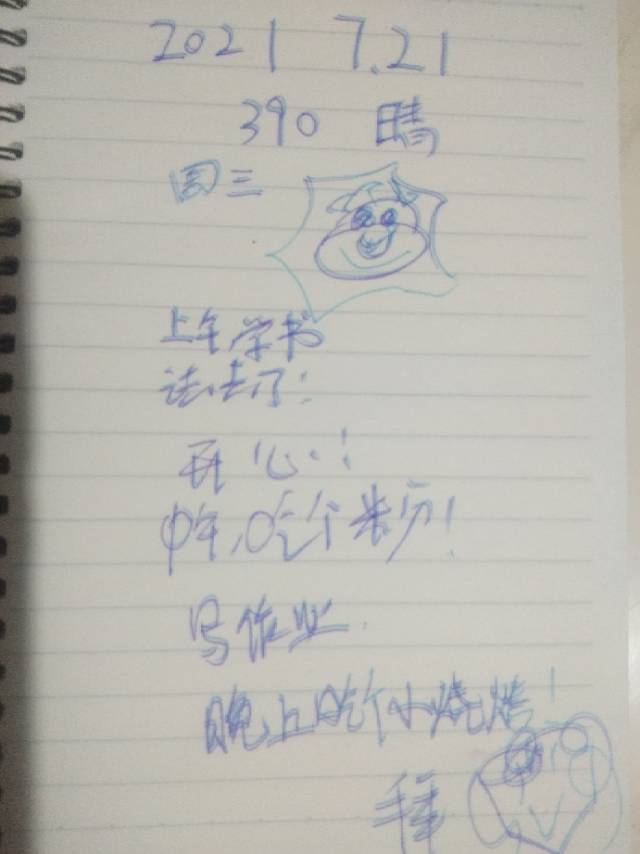 2021 7.21
390 晴
周三
上午学书
法去了!
开心!
中午,吃个米粉!
写作业.
晚上吃个小烧烤!